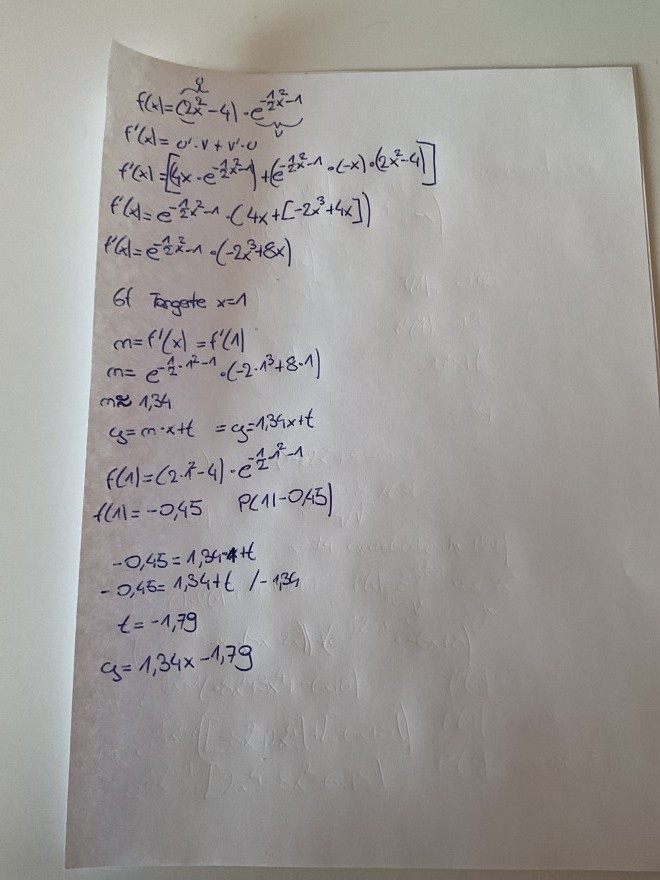 u
f(x)=(2x²-4)·e^{-1/2x²-1}
v
f'(x)= u'·v + v'·u
f'(x)=[(4x·e^{-1/2x²-1})+(e^{-1/2x²-1}·(-x)·(2x²-4)]
f'(x)=e^{-1/2x²-1}·(4x+[-2x³+4x])
f'(x)=e^{-1/2x²-1}·(-2x³+8x)
Gf Tangete x=1
m=f'(x) =f'(1)
m= e^{-1/2·1²-1}·(-2·1³+8·1)
m≈1,34
y=m·x+t =y=1,34x+t
f(1)=(2·1²-4)·e^{-1/2·1²-1}
f(1)=-0,45 P(1|-0,45)
-0,45=1,34·1+t
-0,45=1,34+t /-1,34
t=-1,79
y=1,34x-1,79